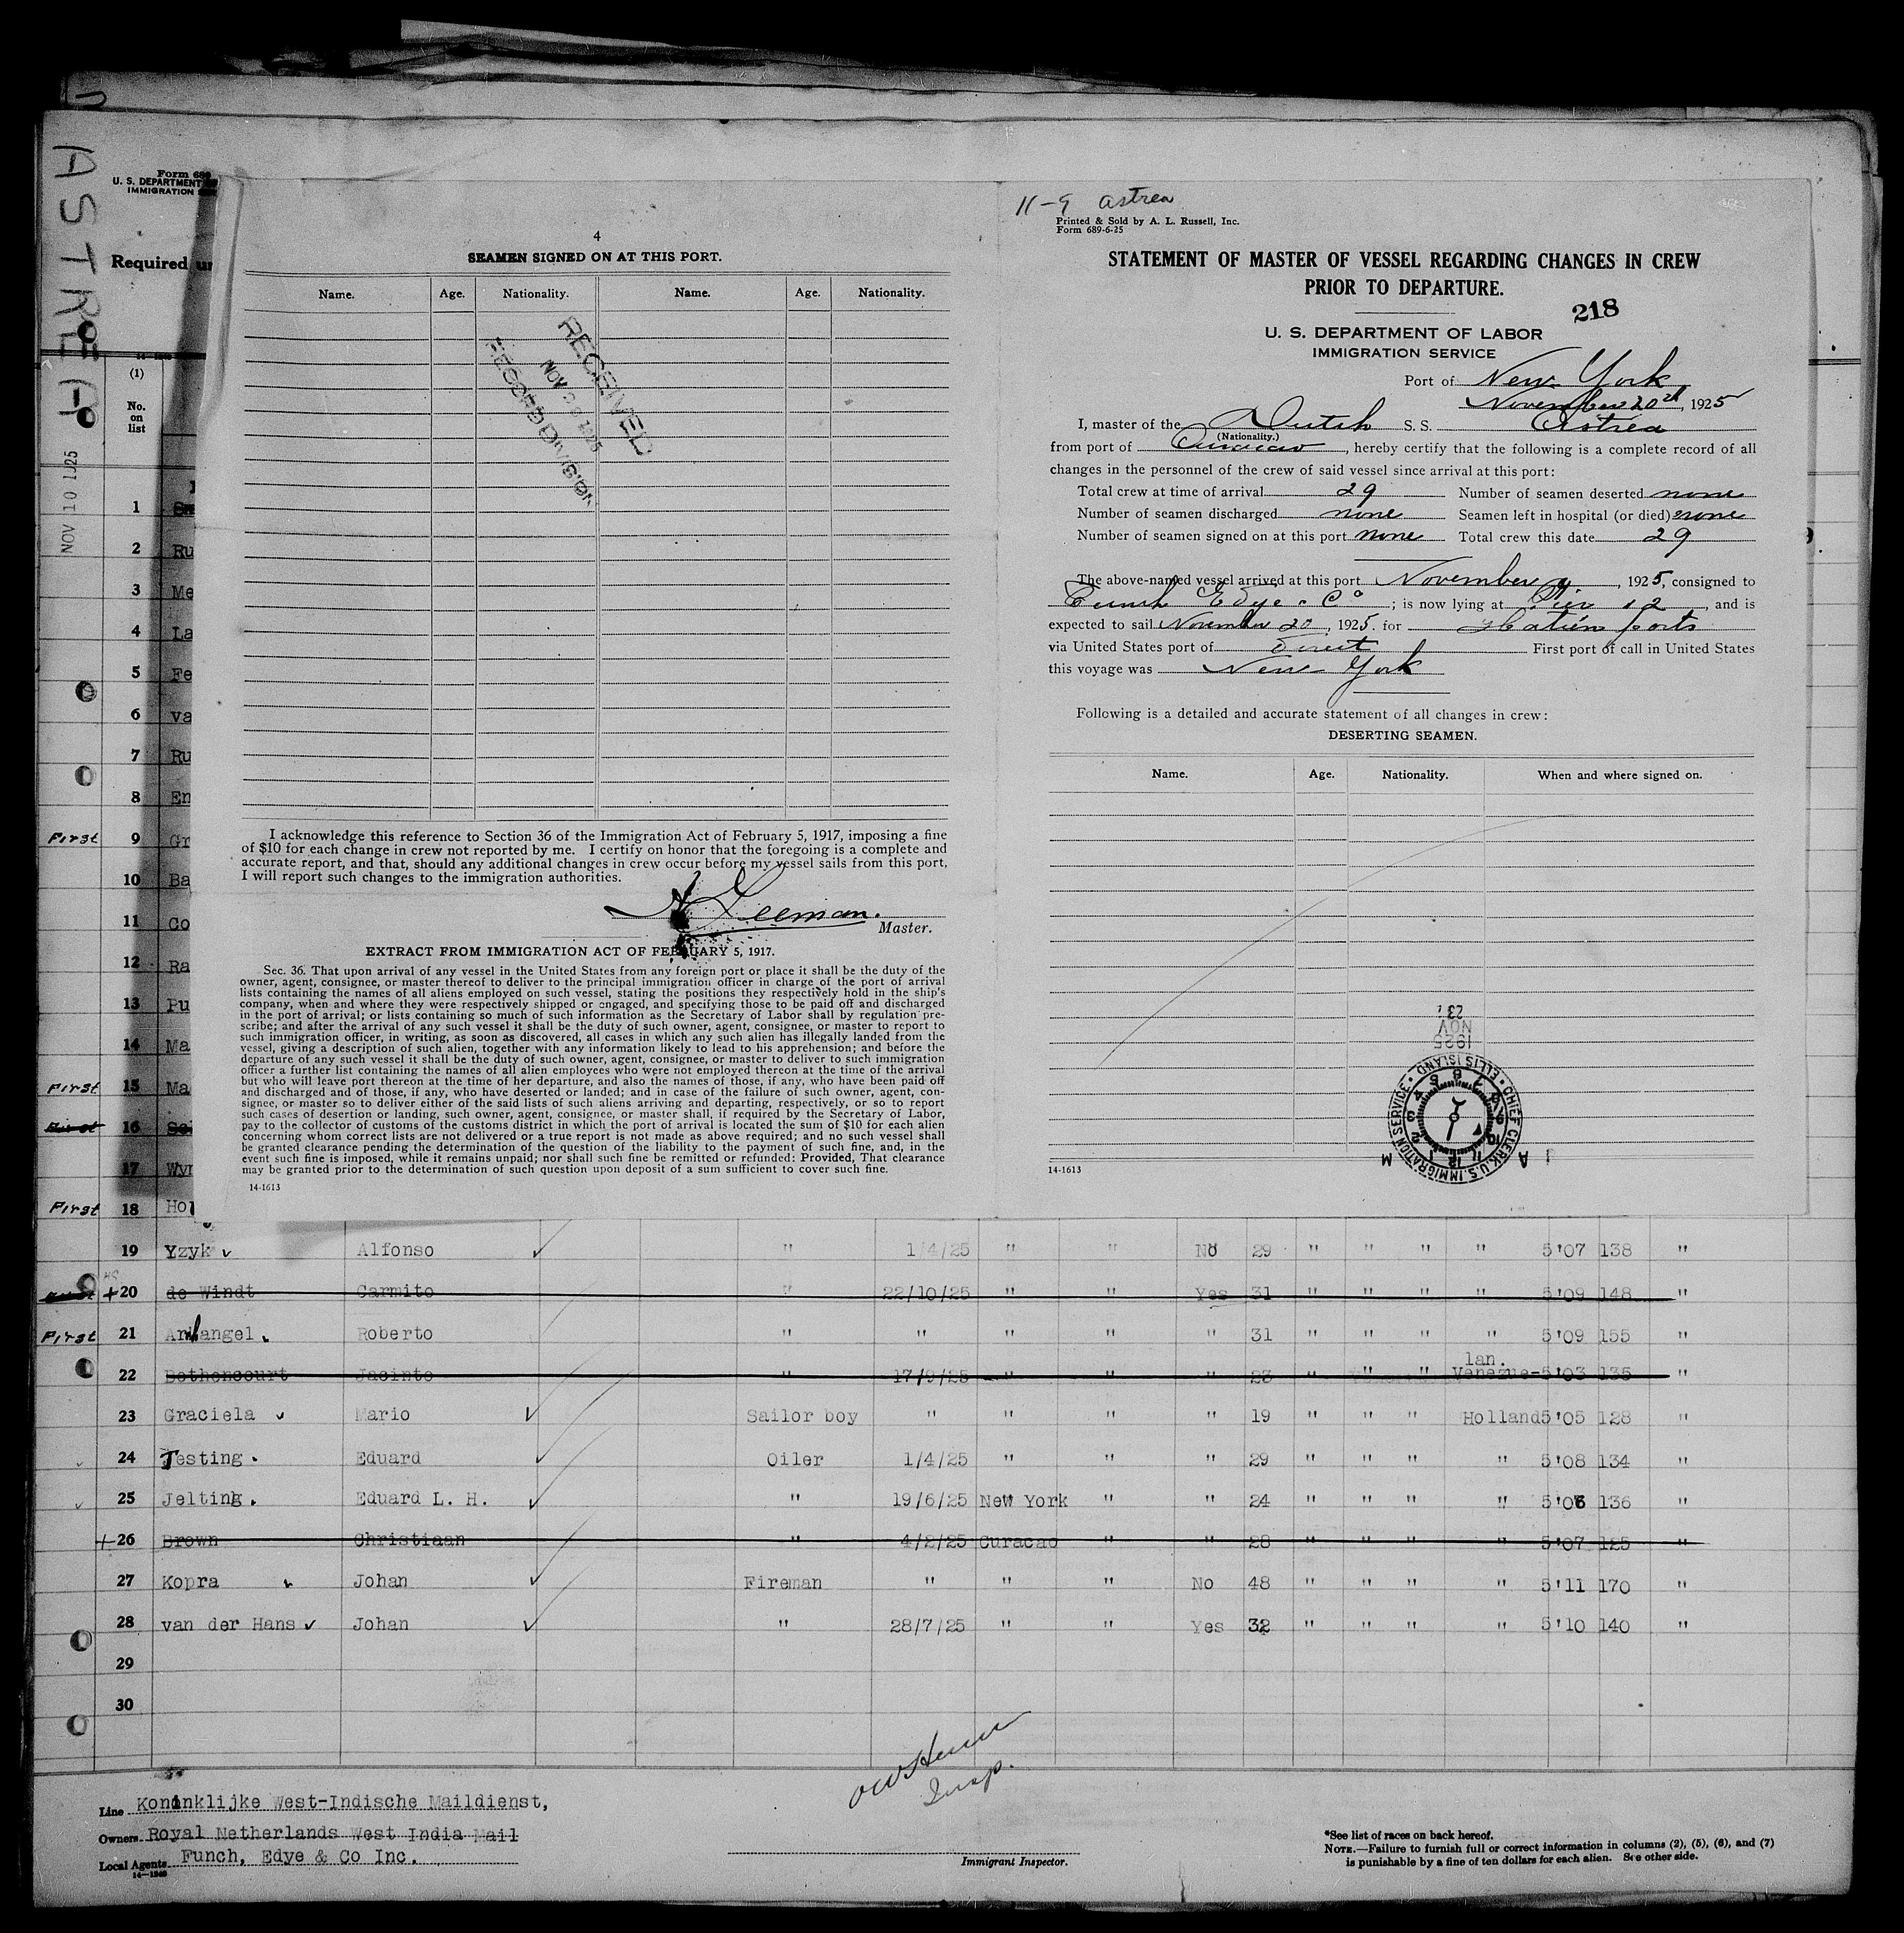 ASTREA
NOV 10 1925
Form 689
U. S. DEPARTMENT
IMMIGRATION
Required un
(1)
No.
on
list
1
2 Ru
3 Me
4 La
5 Fe
6 va
7 Ru
8 En
First 9 Gr
10 Ba
11 Co
12 Ra
13 Pu
14 Ma
First 15 Ma
First 16 So
17 Wyn
First 18 Ho
4
SEAMEN SIGNED ON AT THIS PORT.
Name. Age. Nationality. Name. Age. Nationality.
RECEIVED
NOV 1925
RECORD DIVISION
I acknowledge this reference to Section 36 of the Immigration Act of February 5, 1917, imposing a fine
of $10 for each change in crew not reported by me. I certify on honor that the foregoing is a complete and
accurate report, and that, should any additional changes in crew occur before my vessel sails from this port,
I will report such changes to the immigration authorities.
A Leeman.
Master.
EXTRACT FROM IMMIGRATION ACT OF FEBRUARY 5, 1917.
Sec. 36. That upon arrival of any vessel in the United States from any foreign port or place it shall be the duty of the
owner, agent, consignee, or master thereof to deliver to the principal immigration officer in charge of the port of arrival
lists containing the names of all aliens employed on such vessel, stating the positions they respectively hold in the ship's
company, when and where they were respectively shipped or engaged, and specifying those to be paid off and discharged
in the port of arrival; or lists containing so much of such information as the Secretary of Labor shall by regulation pre-
scribe; and after the arrival of any such vessel it shall be the duty of such owner, agent, consignee, or master to report to
such immigration officer, in writing, as soon as discovered, all cases in which any such alien has illegally landed from the
vessel, giving a description of such alien, together with any information likely to lead to his apprehension; and before the
departure of any such vessel it shall be the duty of such owner, agent, consignee, or master to deliver to such immigration
officer a further list containing the names of all alien employees who were not employed thereon at the time of the arrival
but who will leave port thereon at the time of her departure, and also the names of those, if any, who have been paid off
and discharged and of those, if any, who have deserted or landed; and in case of the failure of such owner, agent, con-
signee, or master so to deliver either of the said lists of such aliens arriving and departing, respectively, or so to report
such cases of desertion or landing, such owner, agent, consignee, or master shall, if required by the Secretary of Labor,
pay to the collector of customs of the customs district in which the port of arrival is located the sum of $10 for each alien
concerning whom correct lists are not delivered or a true report is not made as above required; and no such vessel shall
be granted clearance pending the determination of the question of the liability to the payment of such fine, and, in the
event such fine is imposed, while it remains unpaid; nor shall such fine be remitted or refunded: Provided, That clearance
may be granted prior to the determination of such question upon deposit of a sum sufficient to cover such fine.
14-1613
11-9 Astrea
Printed & Sold by A. L. Russell, Inc.
Form 689-6-25
STATEMENT OF MASTER OF VESSEL REGARDING CHANGES IN CREW
PRIOR TO DEPARTURE.
218
U. S. DEPARTMENT OF LABOR
IMMIGRATION SERVICE
Port of New York
November 20th, 1925
I, master of the Dutch S. S. Astrea
(Nationality.)
from port of Curacao, hereby certify that the following is a complete record of all
changes in the personnel of the crew of said vessel since arrival at this port:
Total crew at time of arrival 29 Number of seamen deserted none
Number of seamen discharged none Seamen left in hospital (or died) none
Number of seamen signed on at this port none Total crew this date 29
The above-named vessel arrived at this port November 9, 1925, consigned to
Funch Edye & Co; is now lying at Pier 12, and is
expected to sail November 20, 1925. for Haitien ports
via United States port of Direct First port of call in United States
this voyage was New York
Following is a detailed and accurate statement of all changes in crew:
DESERTING SEAMEN.
Name. Age. Nationality. When and where signed on.
1925
NOV
23
CHIEF CLERK, U.S. IMMIGRATION SERVICE • ELLIS ISLAND •
14-1613
19 Yzyk Alfonso " 1/4/25 " " No 29 " " " " 5'07 138 "
+20 de Windt Carmito " 22/10/25 " " Yes 31 " " " " 5'09 148 "
First 21 Arkangel Roberto " " " " " 31 " " " " 5'09 155 "
22 Bethencourt Jacinto " 17/9/25 " " " 23 " " " Venezue-lan. 5'03 135 "
23 Graciela Mario Sailor boy " " " " 19 " " " Holland 5'05 128 "
24 Testing Eduard Oiler 1/4/25 " " " 29 " " " " 5'08 134 "
25 Jelting Eduard L. H. " 19/6/25 New York " " 24 " " " " 5'06 136 "
+26 Brown Christiaan " 4/2/25 Curacao " " 28 " " " " 5'07 125 "
27 Kopra Johan Fireman " " " No 48 " " " " 5'11 170 "
28 van der Hans Johan " 28/7/25 " " Yes 32 " " " " 5'10 140 "
29
30
Insp.
Line Koninklijke West-Indische Maildienst,
Owners Royal Netherlands West India Mail
Local Agents Funch, Edye & Co Inc.
14-1240
Immigrant Inspector.
*See list of races on back hereof.
NOTE.—Failure to furnish full or correct information in columns (2), (5), (6), and (7)
is punishable by a fine of ten dollars for each alien. See other side.